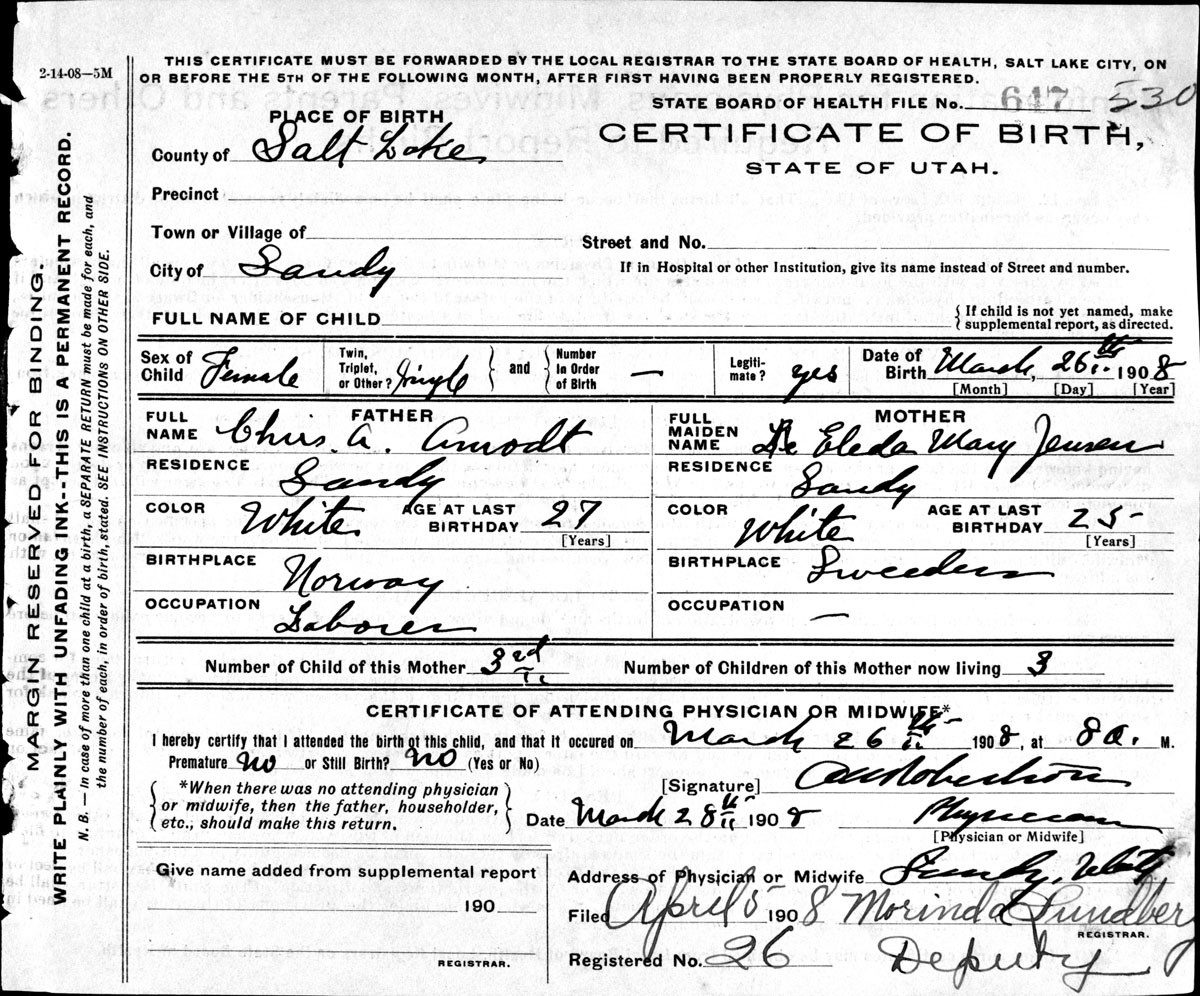 2-14-08—5M
THIS CERTIFICATE MUST BE FORWARDED BY THE LOCAL REGISTRAR TO THE STATE BOARD OF HEALTH, SALT LAKE CITY, ON
OR BEFORE THE 5TH OF THE FOLLOWING MONTH, AFTER FIRST HAVING BEEN PROPERLY REGISTERED.
STATE BOARD OF HEALTH FILE No. 647 530
PLACE OF BIRTH
CERTIFICATE OF BIRTH,
STATE OF UTAH.
County of Salt Lake
Precinct
Town or Village of
Street and No.
City of Sandy
If in Hospital or other Institution, give its name instead of Street and number.
FULL NAME OF CHILD
{ If child is not yet named, make
supplemental report, as directed.
Sex of Child Female
Twin, Triplet, or Other? Single
and
Number In Order of Birth —
Legiti-mate? yes
Date of Birth March 26th 1908
[Month] [Day] [Year]
FATHER
FULL NAME Chris. A. Amodt
RESIDENCE Sandy
COLOR White AGE AT LAST BIRTHDAY 27
[Years]
BIRTHPLACE Norway
OCCUPATION Laborer
MOTHER
FULL MAIDEN NAME Eleda Mary Jensen
RESIDENCE Sandy
COLOR White AGE AT LAST BIRTHDAY 25
[Years]
BIRTHPLACE Sweeden
OCCUPATION —
Number of Child of this Mother 3rd
Number of Children of this Mother now living 3
CERTIFICATE OF ATTENDING PHYSICIAN OR MIDWIFE*
I hereby certify that I attended the birth of this child, and that it occured on March 26th 1908, at 8 a. M.
Premature No or Still Birth? No (Yes or No)
[Signature] Robertson
{ *When there was no attending physician
or midwife, then the father, householder,
etc., should make this return. }
Date March 28th 1908
Physician
[Physician or Midwife]
Give name added from supplemental report
190
REGISTRAR.
Address of Physician or Midwife Sandy, Utah
Filed April 5 1908 Morinda Lundberg
REGISTRAR.
Registered No. 26 Deputy
MARGIN RESERVED FOR BINDING.
WRITE PLAINLY WITH UNFADING INK--THIS IS A PERMANENT RECORD.
N. B.— In case of more than one child at a birth, a SEPARATE RETURN must be made for each, and
the number of each, in order of birth, stated. SEE INSTRUCTIONS ON OTHER SIDE.